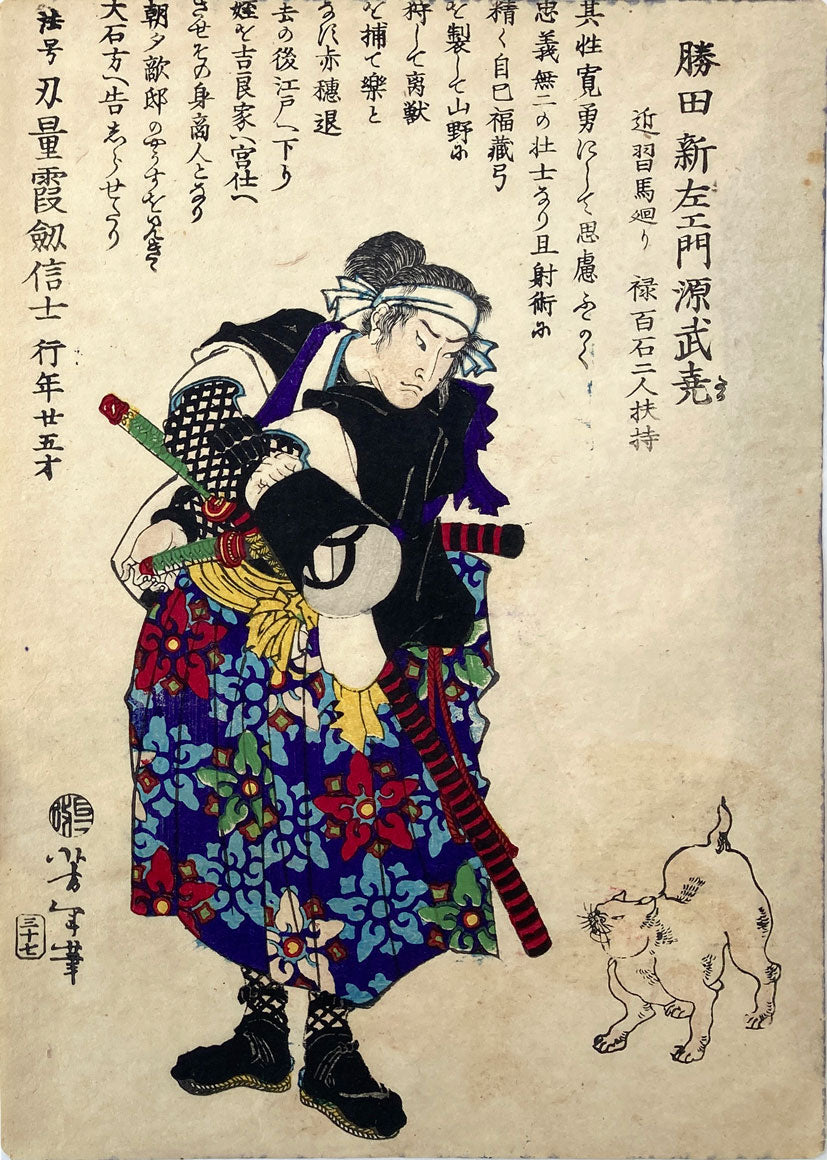 勝田新左エ門源武尭
近習馬廻り 禄百石二人扶持
其性寛勇にして思慮ふかく
忠義無二の壮士なり且射術に
精く自己福藏弓
を製して山野に
狩して禽獣
を捕て樂と
なす赤穗退
去の後江戸へ下り
姪を吉良家へ宮仕へ
させその身商人となり
朝夕敵邸のやうすをきゝ
大石方へ告志らせたり
法号 刃量霞劔信士 行年廿五才
芳年筆
三十七